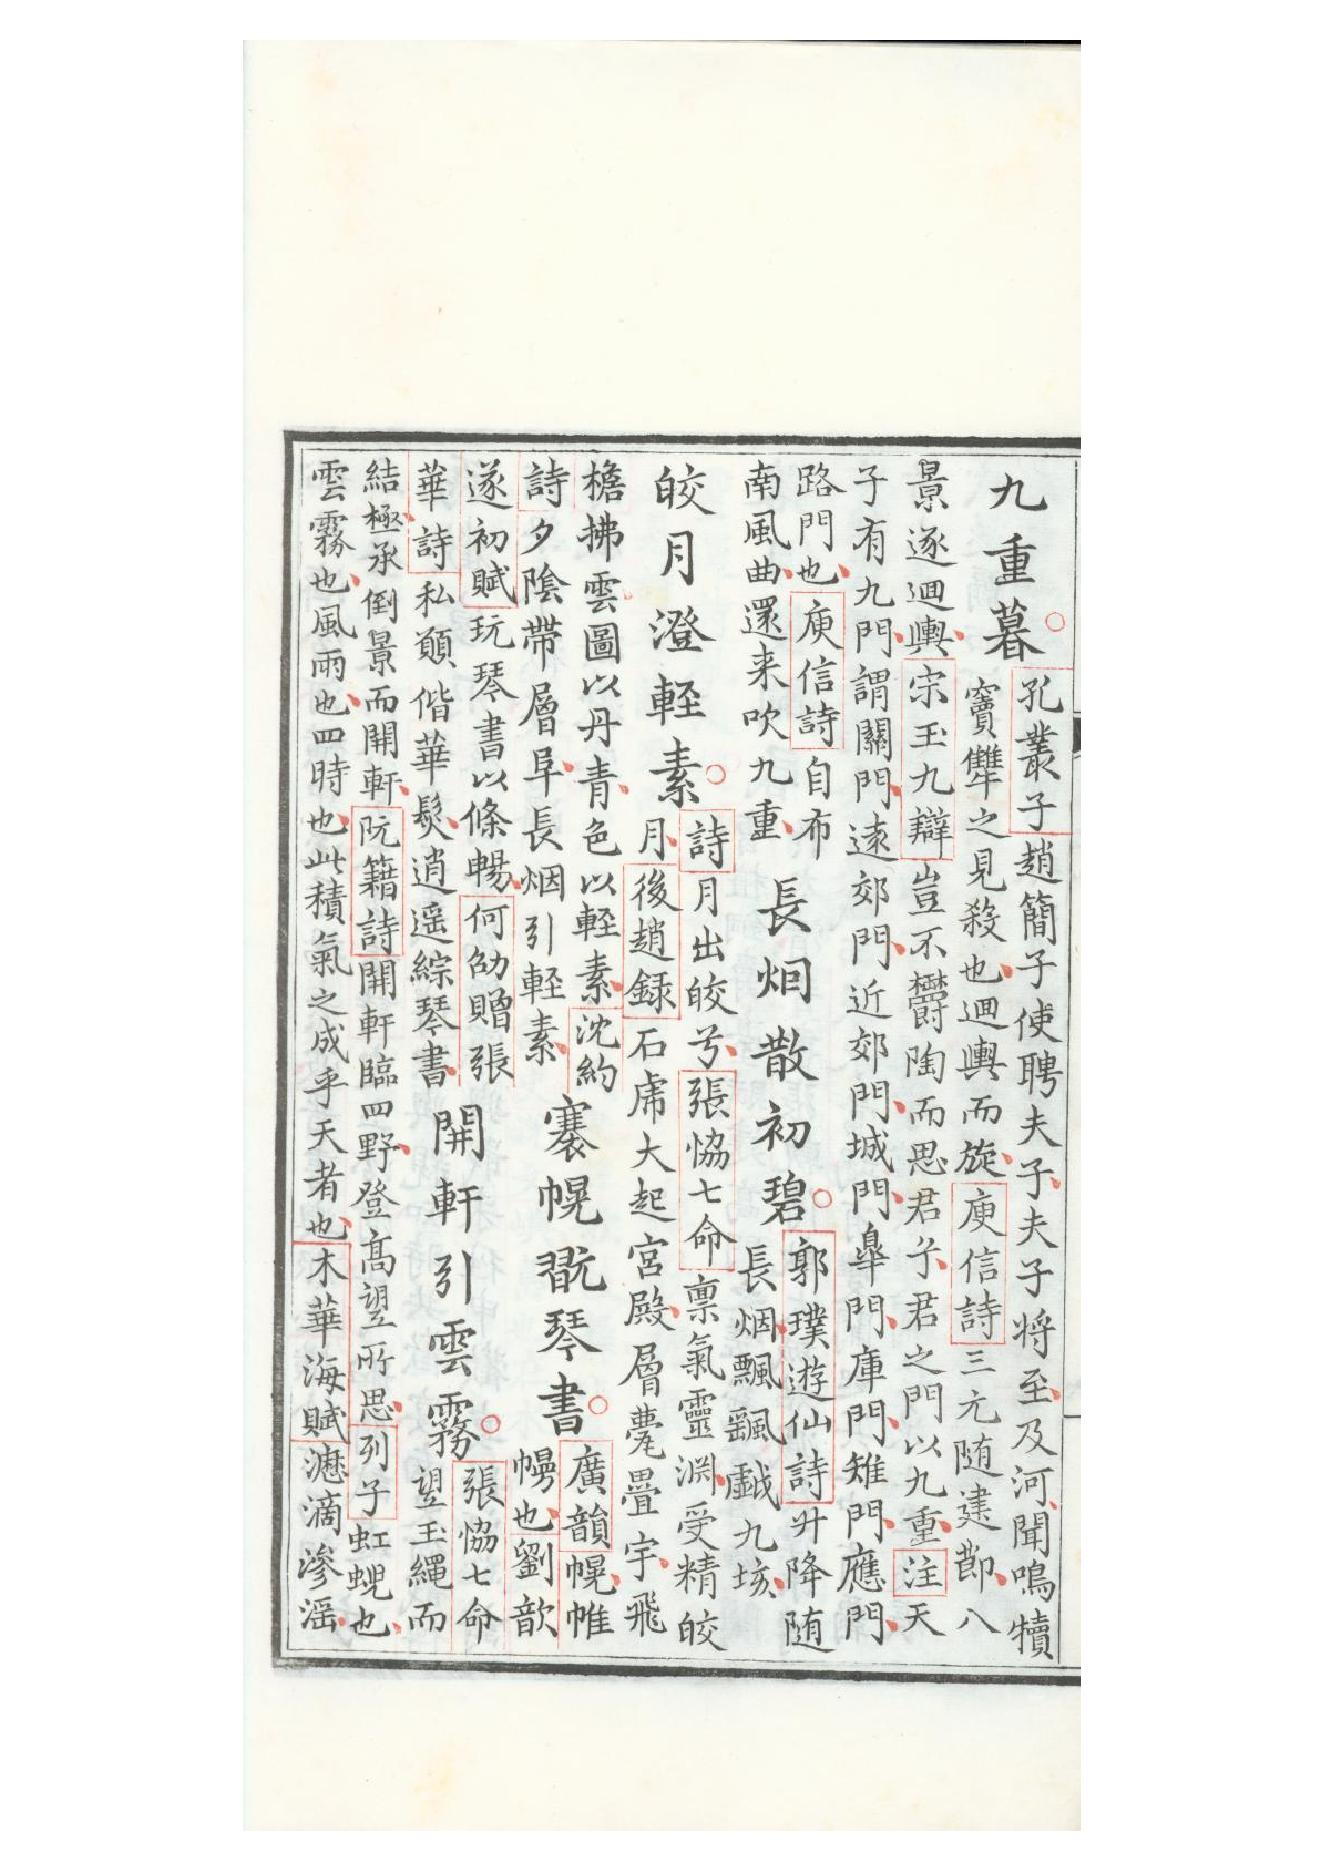 九重暮
孔叢子趙簡子使聘夫子夫子将至及河聞鳴犢
竇犨之見殺也迴輿而旋庾信詩三元随建節八
景逐迴輿宋玉九辯豈不欝陶而思君兮君之門以九重注天
子有九門謂關門遠郊門近郊門城門臯門庫門雉門應門
路門也庾信詩自布
南風曲還来吹九重
長烟散初碧
郭璞遊仙詩升降随
長烟飄颻戯九垓
皎月澄輕素
詩月出皎兮張協七命禀氣靈渊受精皎
月後趙録石虎大起宮殿層甍疊宇飛
檐拂雲圖以丹青色以輕素沈約
詩夕陰帶層阜長烟引輕素
褰幌翫琴書
廣韻幌帷
幔也劉歆
遂初賦玩琴書以條暢何劭贈張
華詩私願偕華髮逍遥綜琴書
開軒引雲霧
張協七命
望玉繩而
結極承倒景而開軒阮籍詩開軒臨四野登高望所思列子虹蜺也
雲霧也風雨也四時也此積氣之成乎天者也木華海賦瀌滴滲淫